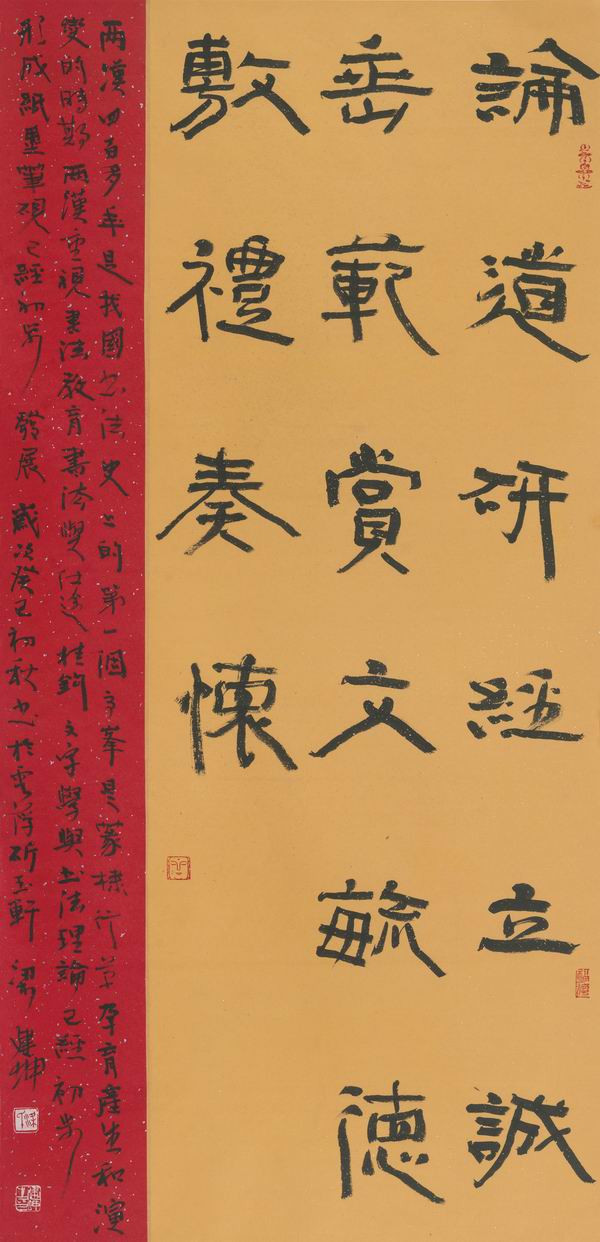 論道研經立誠
垂範賞文毓德
敷禮奏懷
兩漢四百多年是我國书法史上的第一個高峯是篆隸行草孕育產生和演
變的時期兩漢重視書法教育書法與仕途挂鈎文字學與书法理論已經初步
形成紙墨筆硯已經初步發展歲次癸巳初秋书於雲浮斫玉軒梁建坤